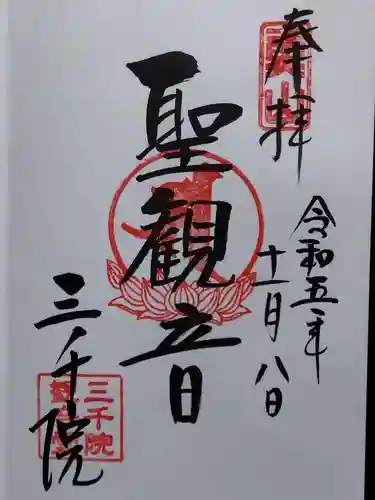 奉拝
令和五年
十一月八日
聖観音
三千院
三千院